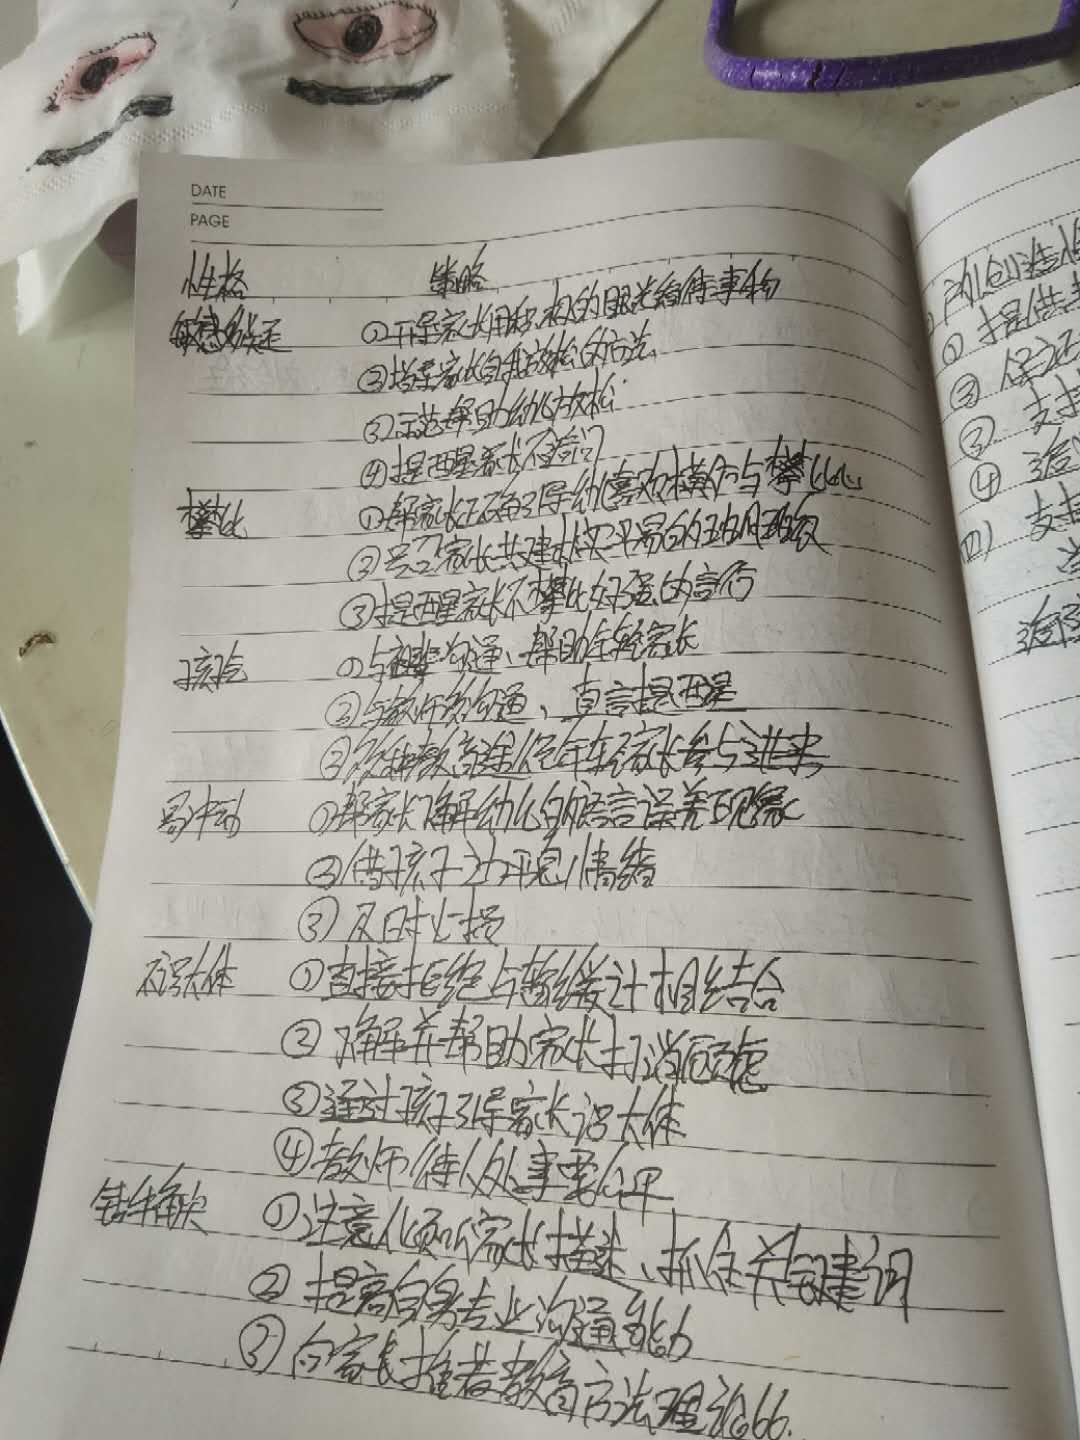 DATE
PAGE
性格 策略
敏感多疑 ①引导家长用积极的眼光看待事物
②指导家长自我放松的方法
③示范帮助幼儿放松
④提醒家长不追问
攀比 ①帮家长正确引导幼儿喜欢模仿与攀比心
②号召家长共建朴实平易的班级
③提醒家长不攀比好强的言行
①与祖辈沟通、帮助年轻家长
②与教师多沟通、直言提醒
年轻家长参与进来
易冲动 ①帮家长了解幼儿的语言误差现象
②借孩子之力平息情绪
③及时
不识大体 ①直接拒绝与缓兵之计相结合
②了解并帮助家长打消顾虑
③通过孩子引导家长识大体
④教师待人处事要公平
钻牛角尖 ①注意倾听家长描述、抓住关键词
②提高自身专业沟通能力
③向家长推荐教育方法理论
①提供
②保证
③支持
④
(四) 支持